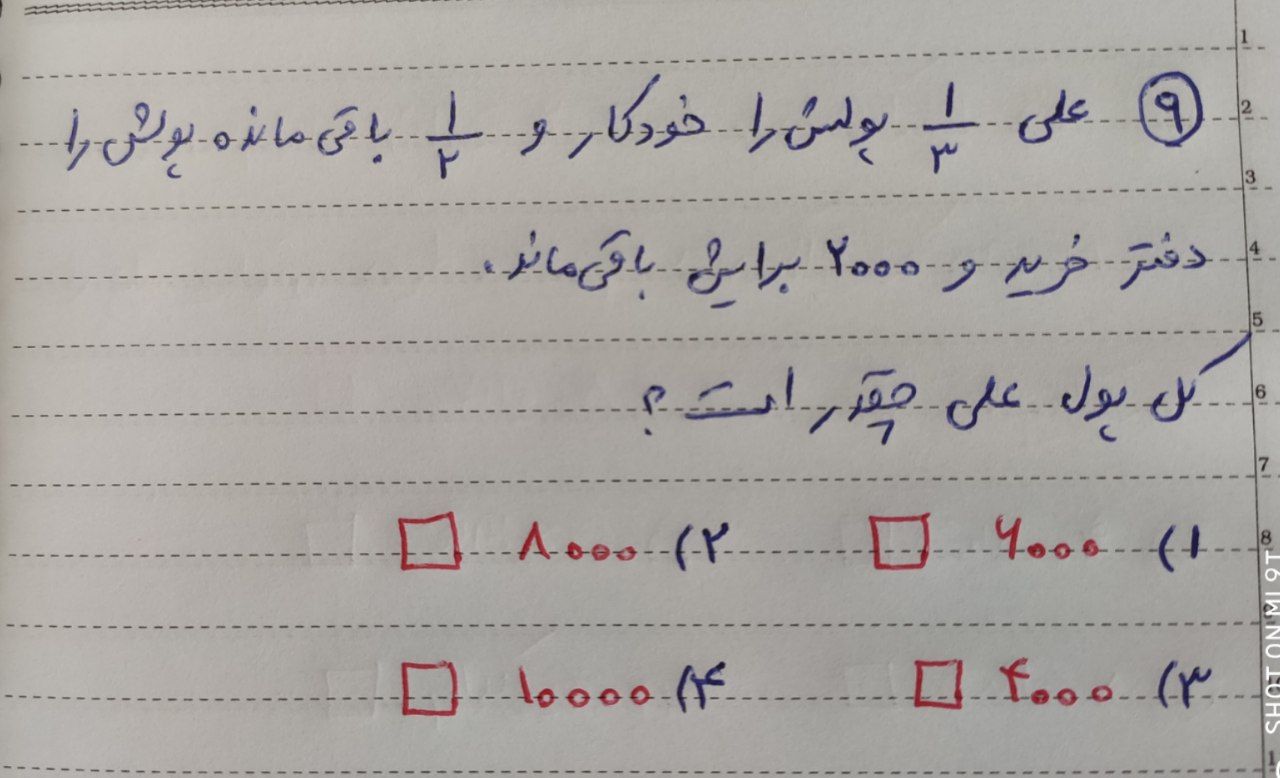 ۹ علی ۱/۳ پولش را خودکار و ۱/۲ باقی مانده پولش را
دفتر خرید و ۲۰۰۰ برایش باقی ماند.
کل پول علی چقدر است؟
۱) ۶۰۰۰ ۲) ۸۰۰۰
۳) ۴۰۰۰ ۴) ۱۰۰۰۰
1
2
3
4
5
6
7
8
SHOT ON MI 9T